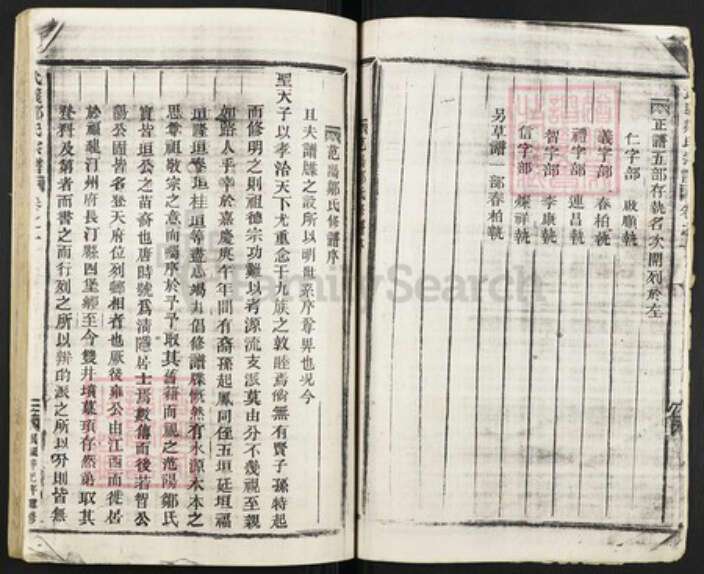 正譜五部存執名次開列於左
仁字部 啟順執
義字部 春柏執
禮字部 連昌執
智字部 李康執
信字部 燦祥執
另草譜一部春柏執
范陽鄒氏修譜序
且夫譜牒之設所以明世系序尊卑也況今
聖天子以孝治天下尤重念于九族之敦睦焉倘無有賢子孫特起
而修明之則祖德宗功難以考源流支派莫由分不幾視至親
如路人乎幸於嘉慶庚午年間有裔孫起鳳同侄五垣廷垣福
垣隆垣泰垣桂垣等盡心竭力倡修譜牒慨然有水源木本之
思尊祖敬宗之意而囑序於予予取其舊籍而觀之范陽鄒氏
實皆垣公之苗裔也唐時號為清隱居士焉數傳而後若智公
陽公固皆名登天府位列卿相者也厥後雍公由江西而徙居
於福建汀州府長汀縣四堡鄉至今雙井墳墓猶存然第取其
登科及第者而書之而行列之所以辨的派之所以分則皆無
FamilySearch